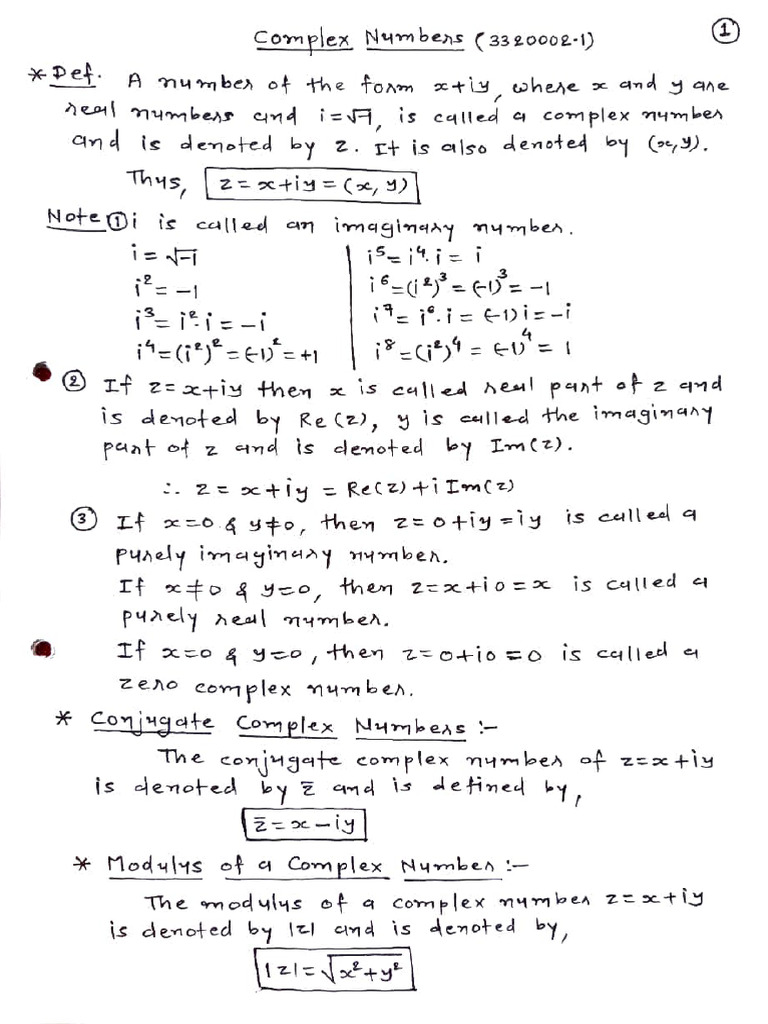 ①
Complex Numbers (3320002-1)
* Def. A number of the form x+iy, where x and y are
real numbers and i=√-1, is called a complex number
and is denoted by z. It is also denoted by (x, y).
Thus, z = x+iy = (x, y)
Note ① i is called an imaginary number.
i = √-1 | i⁵ = i⁴.i = i
i² = -1 | i⁶ = (i²)³ = (-1)³ = -1
i³ = i².i = -i | i⁷ = i⁶.i = (-1)i = -i
i⁴ = (i²)² = (-1)² = +1 | i⁸ = (i²)⁴ = (-1)⁴ = 1
② If z = x+iy then x is called real part of z and
is denoted by Re(z), y is called the imaginary
part of z and is denoted by Im(z).
∴ z = x+iy = Re(z)+i Im(z)
③ If x=0 & y≠0, then z=0+iy=iy is called a
purely imaginary number.
If x≠0 & y=0, then z=x+i0=x is called a
purely real number.
If x=0 & y=0, then z=0+i0=0 is called a
zero complex number.
* Conjugate Complex Numbers :-
The conjugate complex number of z=x+iy
is denoted by z̄ and is defined by,
z̄ = x-iy
* Modulus of a Complex Number :-
The modulus of a complex number z=x+iy
is denoted by |z| and is denoted by,
|z| = √x²+y²